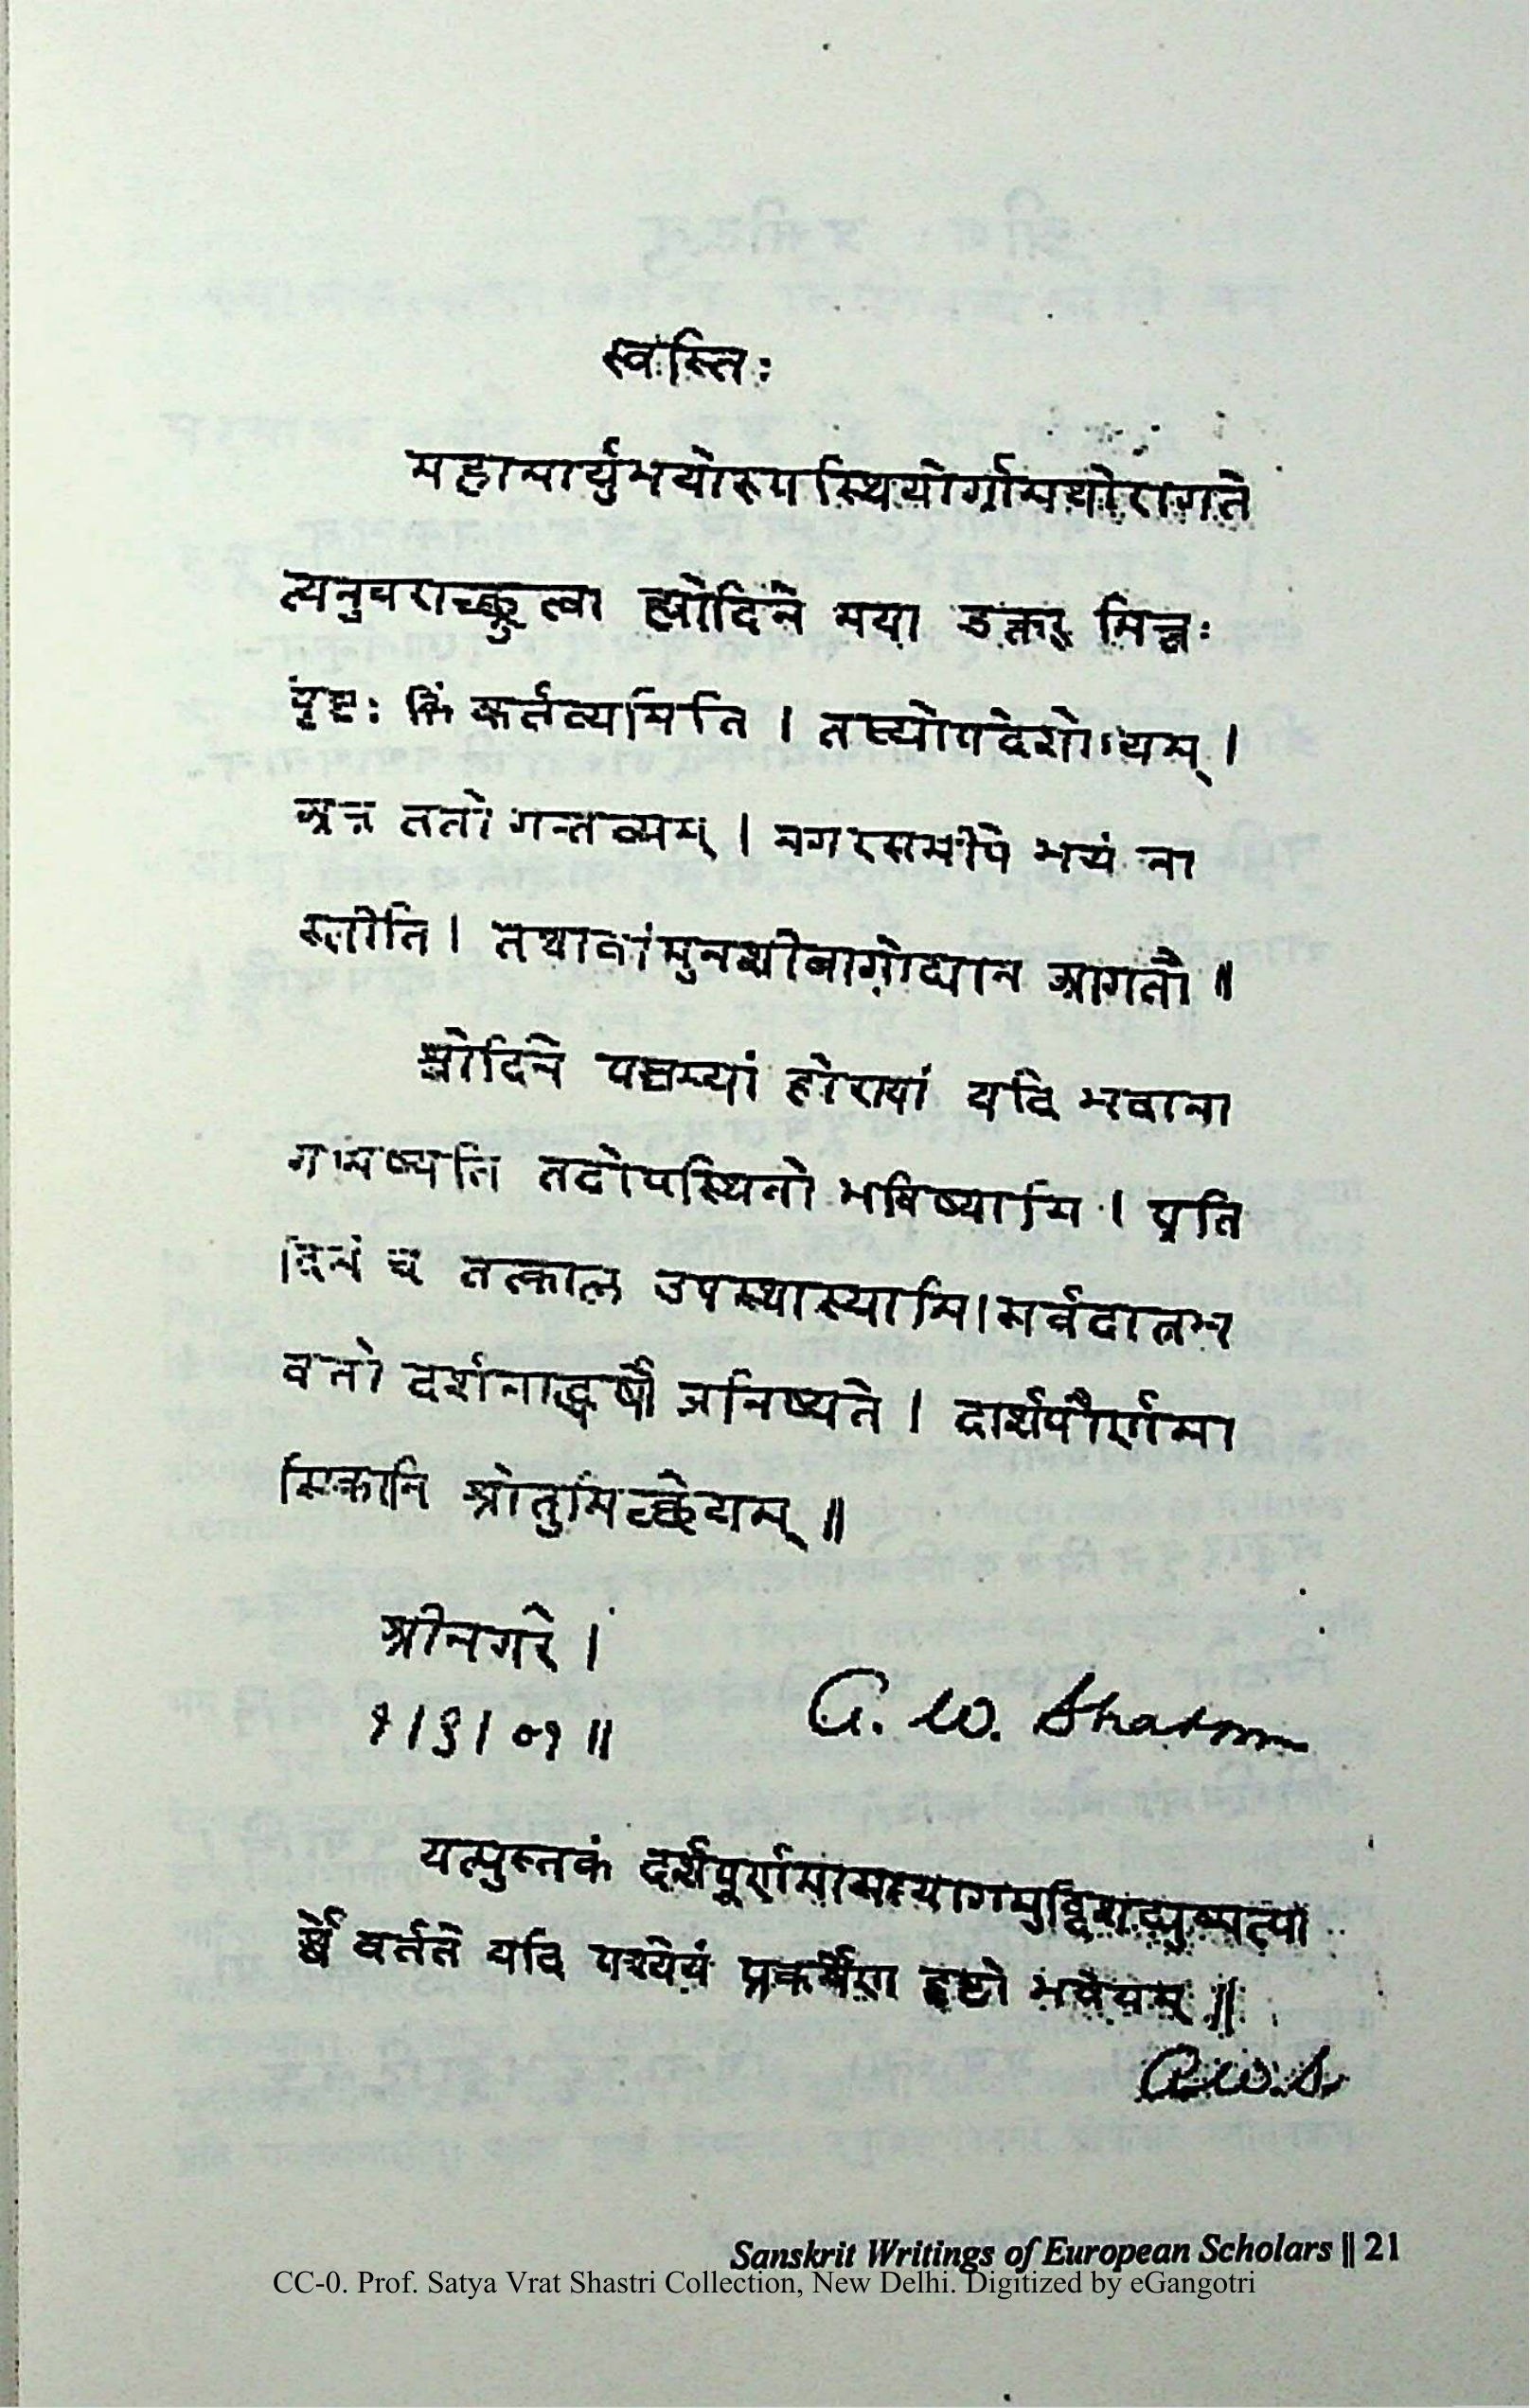 स्वस्तिः
महामार्युभयोरुपस्थियोर्ग्रामयोरागते
त्यनुचराच्छ्रुत्वा ह्योदिने मया डक्तर् मित्रः
पृष्टः किं कर्तव्यमिति । तस्योपदेशोऽयम् ।
अत्र ततो गन्तव्यम् । नगरसमीपे भयं ना
स्तीति । तथावां मुनशीबागोद्यान आगतौ ॥
श्वोदिने पञ्चम्यां होरायां यदि भवाना
गमिष्यति तदोपस्थितो भविष्यामि । प्रति
दिनं च तत्काल उपस्थास्यामि । सर्वदात्रभ
वतो दर्शनाद्धर्षो जनिष्यते । दार्शपौर्णमा
सिकानि श्रोतुमिच्छेयम् ॥
श्रीनगरे ।
१ । ९ । ०१ ॥
G. W. Shatrn
यत्पुस्तकं दर्शपूर्णमासयागमुद्दिश्य
र्श्वे वर्तते यदि पश्येयं प्रकर्षेण हृष्टो भवेयम् ॥
G. W. S.
Sanskrit Writings of European Scholars || 21
CC-0. Prof. Satya Vrat Shastri Collection, New Delhi. Digitized by eGangotri